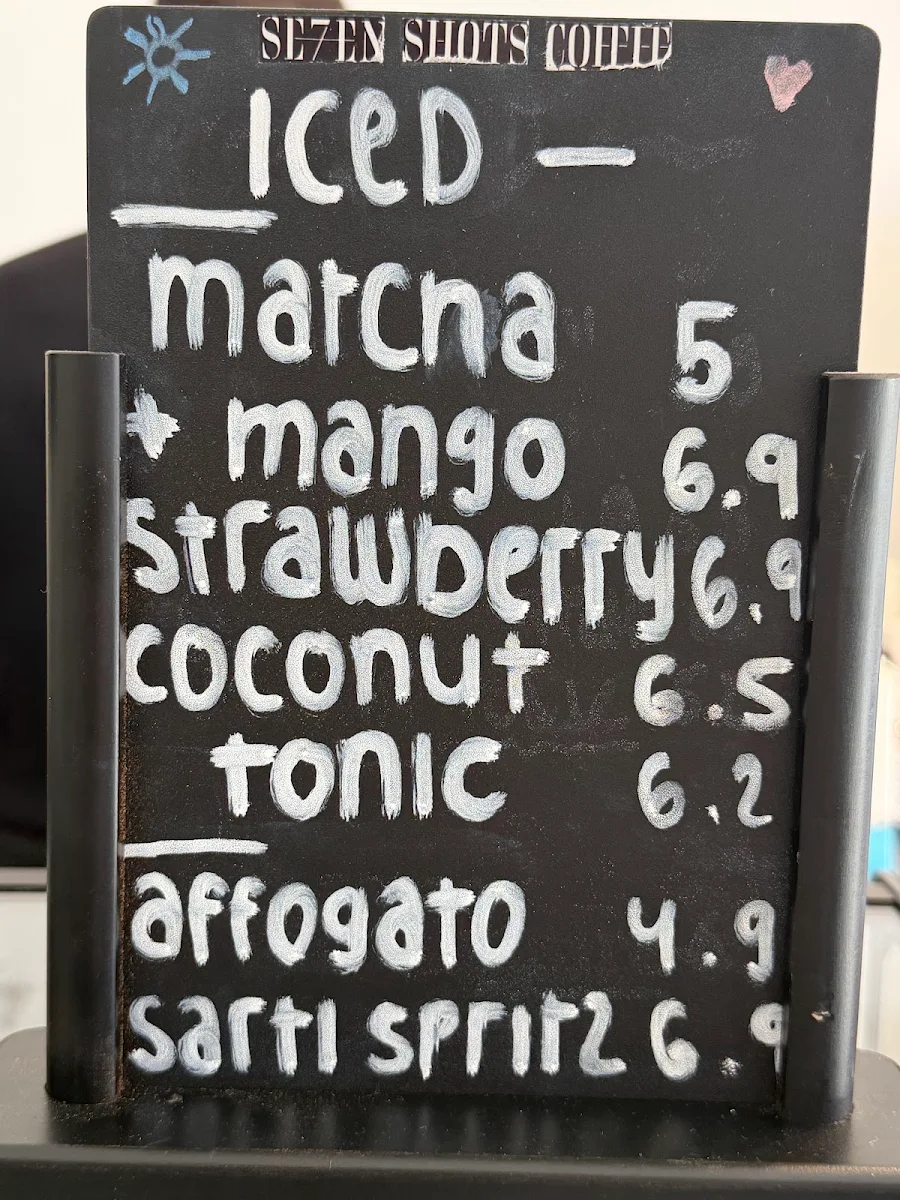 SE7EN SHOTS COFFEE
ICeD —
matcha 5
+ mango 6.9
Strawberry 6.9
coconut 6.5
tonic 6.2
affogato 4.9
sarti spritz 6.9